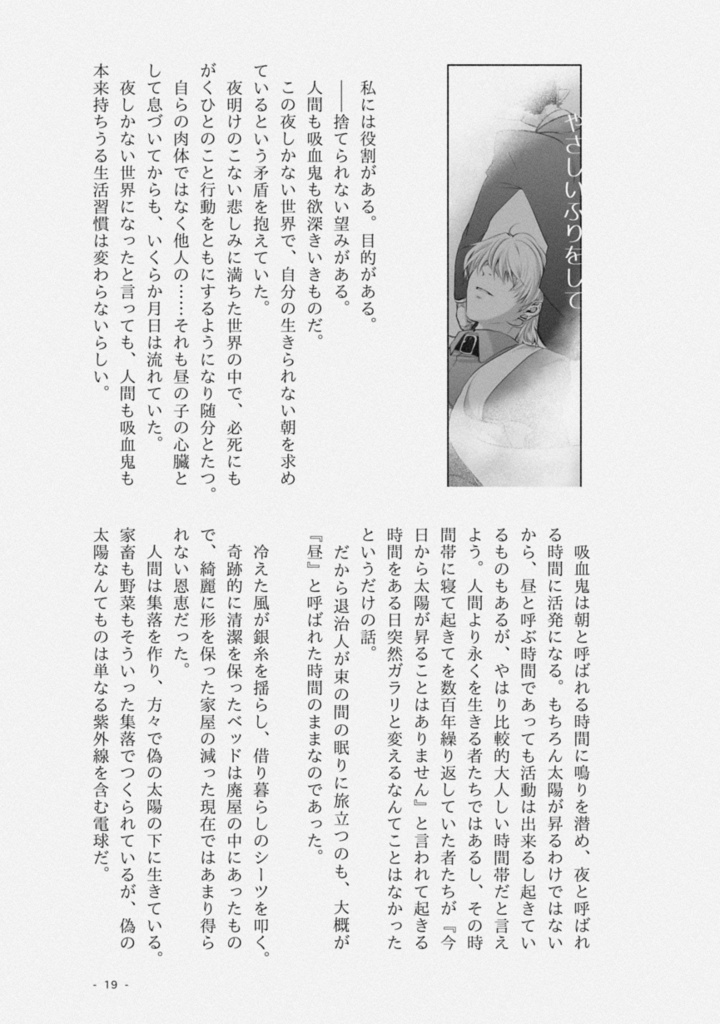 やさしいふりをして
私には役割がある。目的がある。
――捨てられない望みがある。
人間も吸血鬼も欲深きいきものだ。
この夜しかない世界で、自分の生きられない朝を求め
ているという矛盾を抱えていた。
夜明けのこない悲しみに満ちた世界の中で、必死にも
がくひとのこと行動をともにするようになり随分とたつ。
自らの肉体ではなく他人の……それも昼の子の心臓と
して息づいてからも、いくらか月日は流れていた。
夜しかない世界になったと言っても、人間も吸血鬼も
本来持ちうる生活習慣は変わらないらしい。
吸血鬼は朝と呼ばれる時間に鳴りを潜め、夜と呼ばれ
る時間に活発になる。もちろん太陽が昇るわけではない
から、昼と呼ぶ時間であっても活動は出来るし起きてい
るものもあるが、やはり比較的大人しい時間帯だと言え
よう。人間より永くを生きる者たちではあるし、その時
間帯に寝て起きてを数百年繰り返していた者たちが『今
日から太陽が昇ることはありません』と言われて起きる
時間をある日突然ガラリと変えるなんてことはなかった
というだけの話。
だから退治人が束の間の眠りに旅立つのも、大概が
『昼』と呼ばれた時間のままなのであった。
冷えた風が銀糸を揺らし、借り暮らしのシーツを叩く。
奇跡的に清潔を保ったベッドは廃屋の中にあったもの
で、綺麗に形を保った家屋の減った現在ではあまり得ら
れない恩恵だった。
人間は集落を作り、方々で偽の太陽の下に生きている。
家畜も野菜もそういった集落でつくられているが、偽の
太陽なんてものは単なる紫外線を含む電球だ。
- 19 -